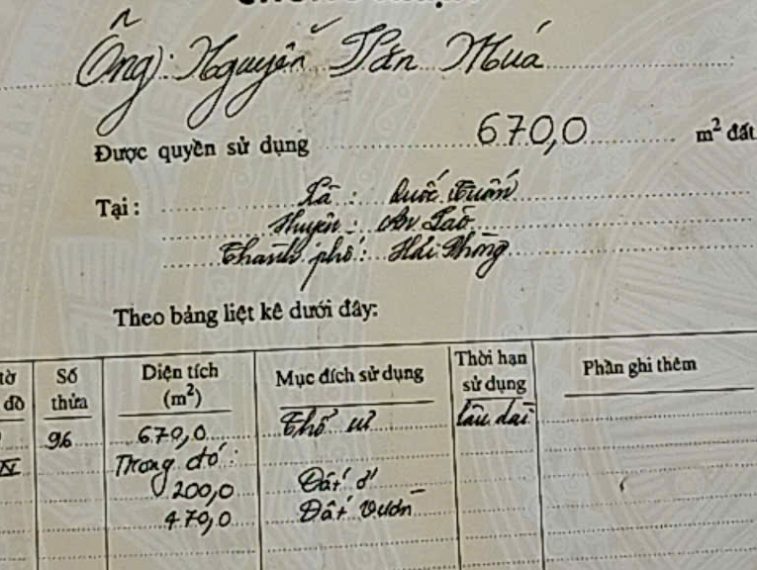 Ông: Nguyễn Văn Muá
Được quyền sử dụng 670,0 m² đất
Tại: Xã: Quốc Tuấn
Huyện: An Lão
Thành phố: Hải Phòng
Theo bảng liệt kê dưới đây:
tờ Số Diện tích Mục đích sử dụng Thời hạn Phần ghi thêm
đồ thửa (m²) sử dụng
96 670,0 Thổ cư lâu dài
IV Trong đó:
200,0 Đất ở
470,0 Đất vườn